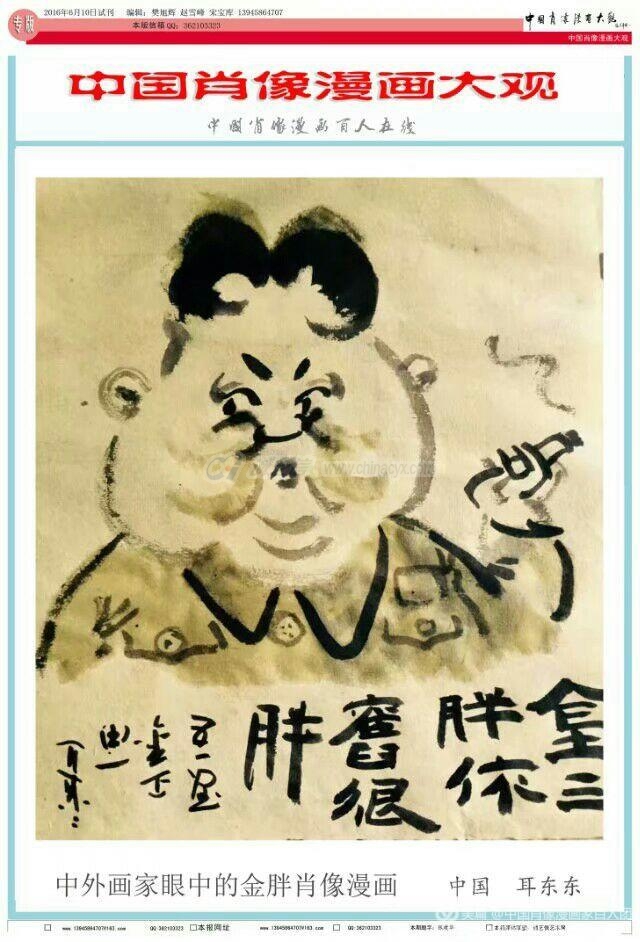 专版
2016年6月10日试刊 编辑:樊旭辉 赵雪峰 宋宝库 13945864707
本版信箱 QQ:362103323
中国肖像漫画大观
中国肖像漫画大观
中国肖像漫画百人在线
www.chinacyx.com
金三
胖依
舊很
胖
中外画家眼中的金胖肖像漫画 中国 耳东东
美篇 @中国肖像漫画家百人团
www.13945864707@163.com QQ:362103323 本报网址 www.13945864707@163.com QQ:362103323